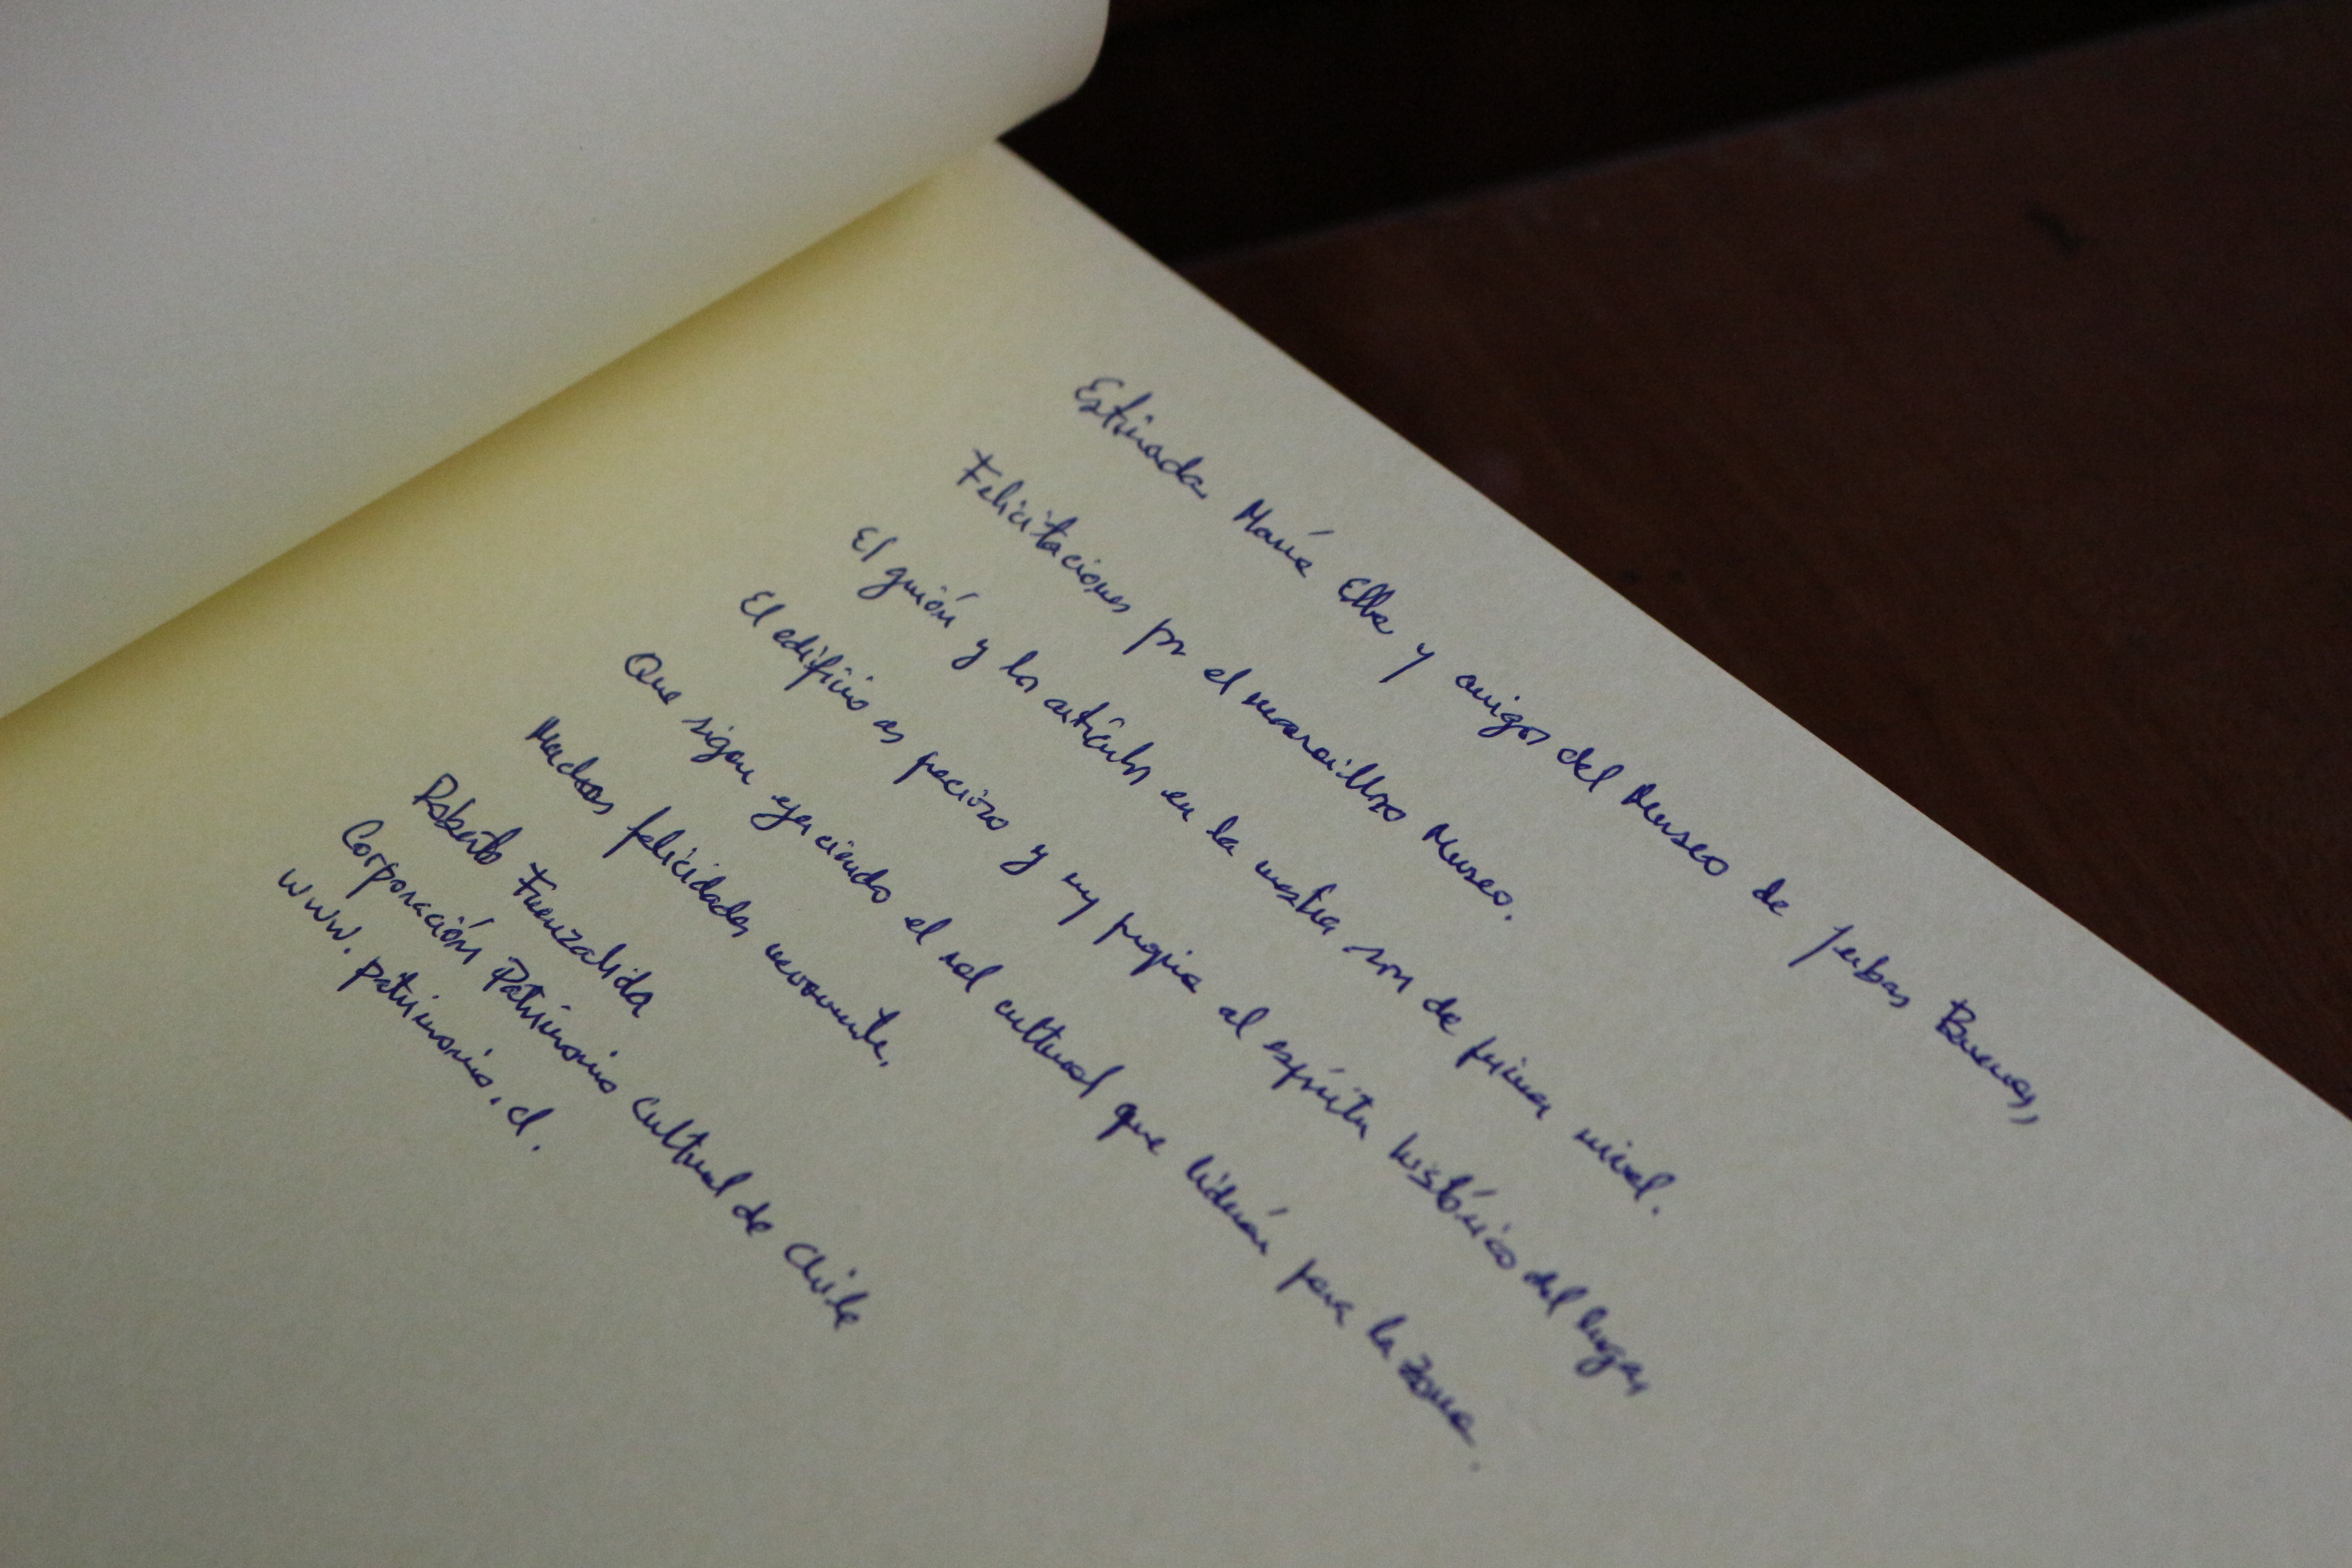 Estimada María Elba y amigos del Museo de Yerbas Buenas,
Felicitaciones por el maravilloso Museo.
El guión y los artículos en la muestra son de primer nivel.
El edificio es precioso y muy propio al espíritu histórico del lugar,
Que sigan ejerciendo el rol cultural que liderán para la zona.
Muchas felicidades nuevamente,
Roberto Fuenzalida
Corporación Patrimonio Cultural de Chile
www.patrimonio.cl.